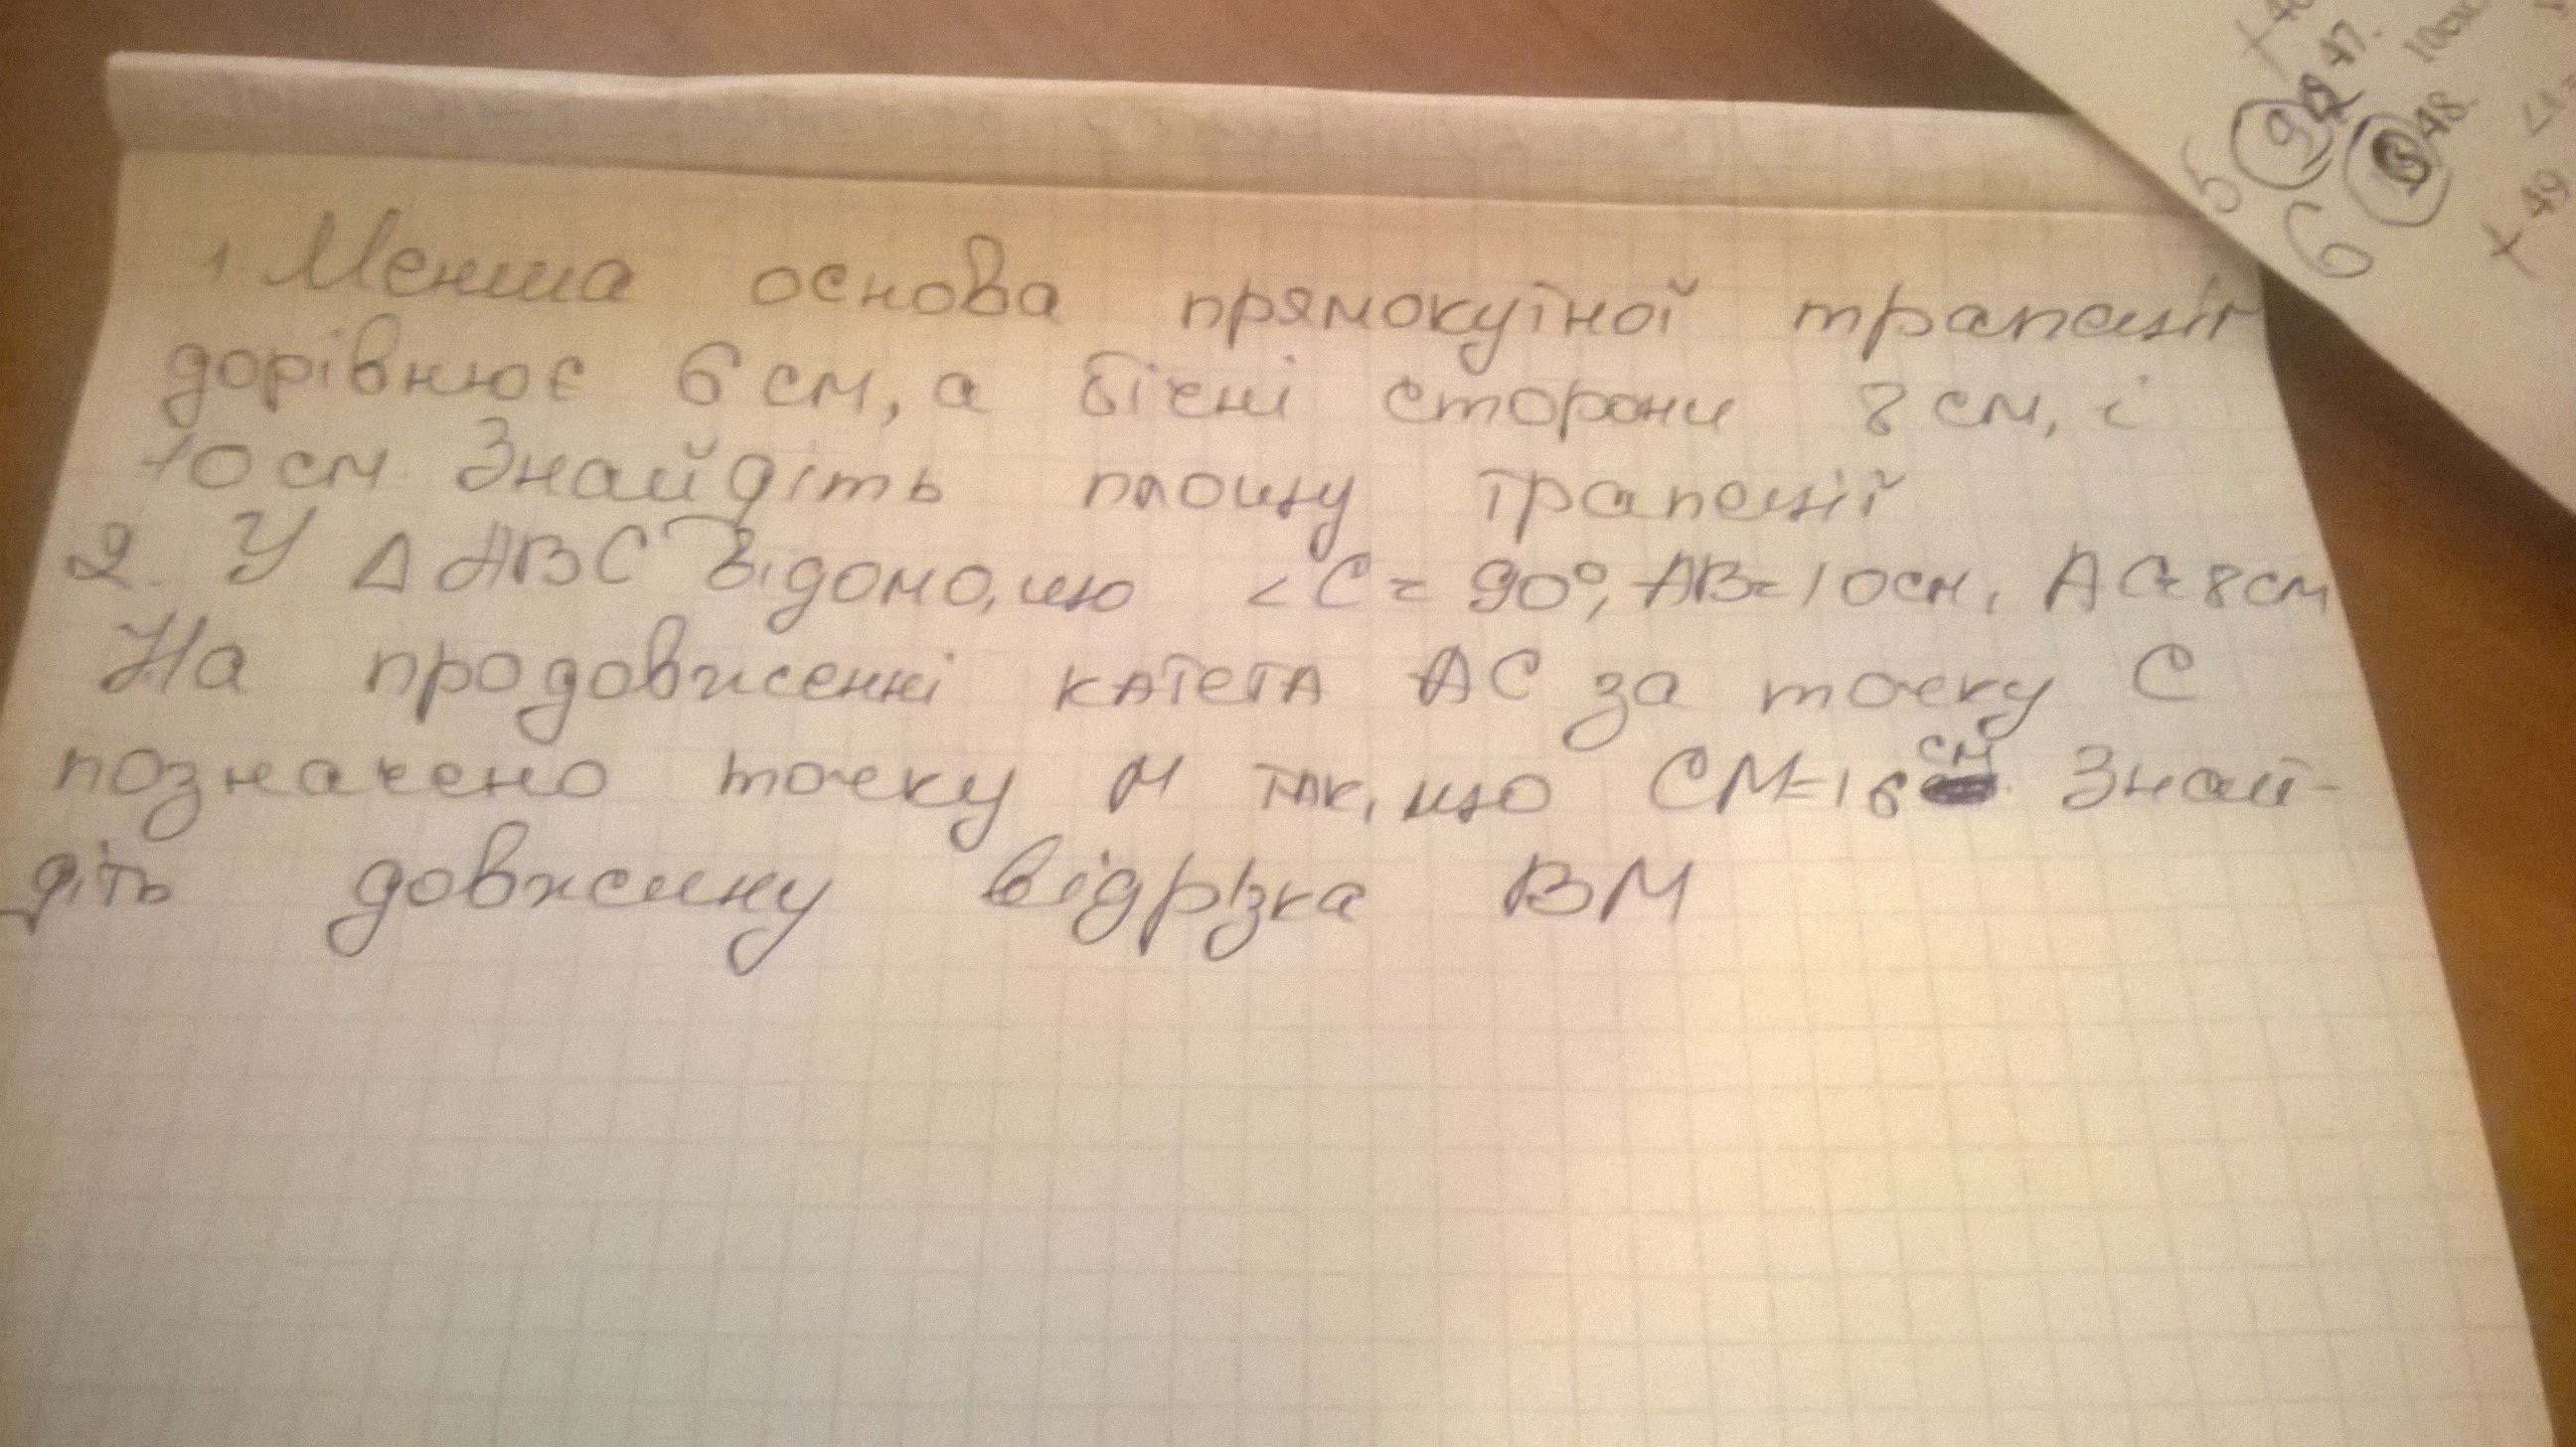 1. Менша основа прямокутної трапеції
дорівнює 6 см, а бічні сторони 8 см, і
10 см. Знайдіть площу трапеції
2. У Δ ABC відомо, що <C = 90°, AB=10см, AC=8см
На продовженні катета AC за точку C
позначено точку M так, що CM=16 см Знай-
діть довжину відрізка BM
47.
92
10см
48.
5
6
+ 49